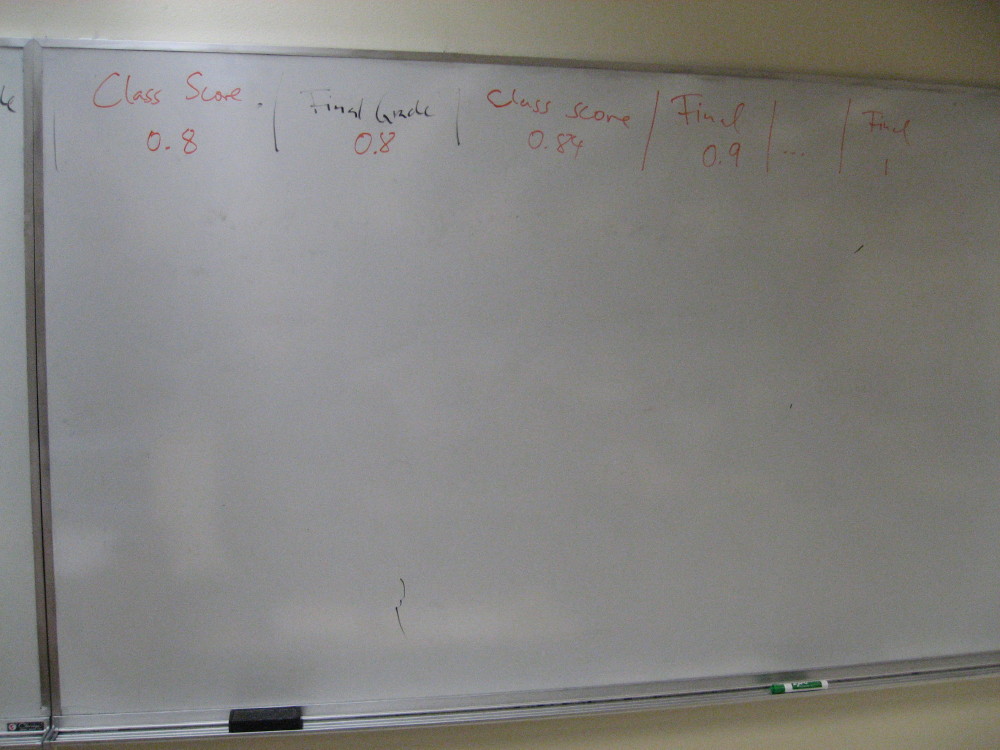 Class Score. Final Grade Class score Final Final
0.8 0.8 0.84 0.9 ... 1